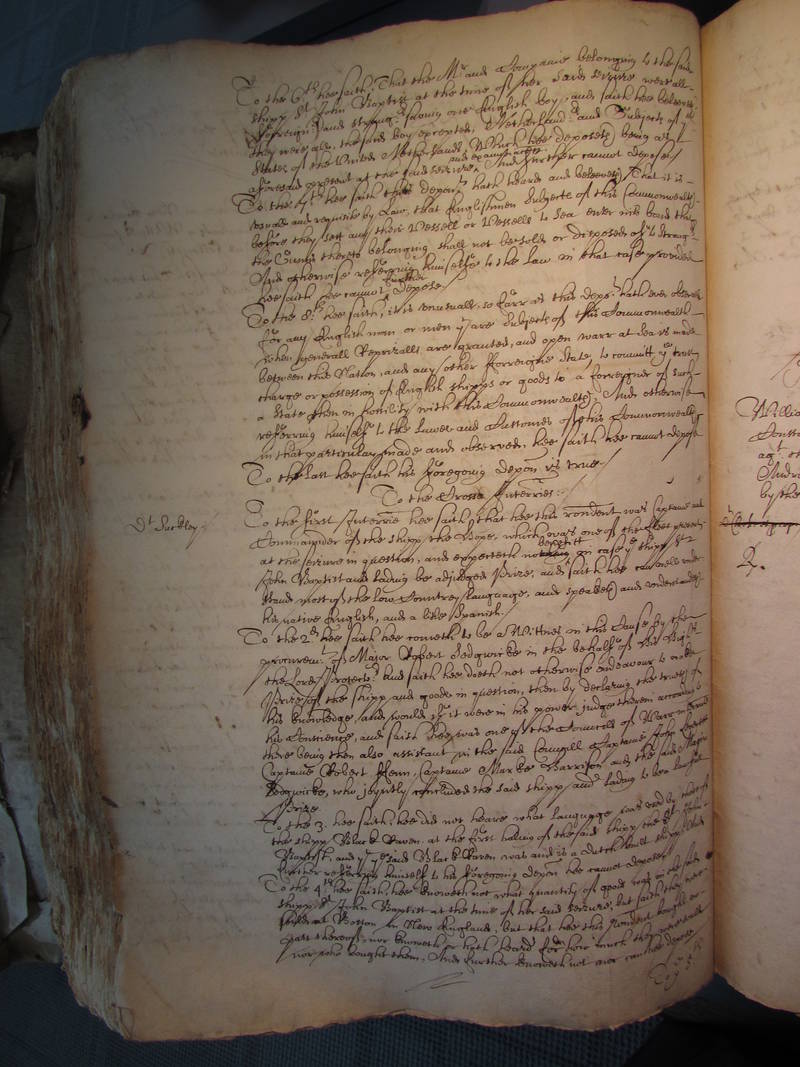 To the 6th hee saith, That the Mr and Companie belonging to the said
shipp St John Baptist at the time of her said seizure were all
fforreigners and strangers (saving one English boy, and saith hee beleeveth
they were all, the said boy excepted, Netherlanders and Subjects of the
States of the United Netherlands, Which hee deposeth being as
aforesaid present at the said seizure and examinacion And further cannot depose
To the 7th hee saith this deponent hath heard and beleeveth That it is
usuall and requisite by Law, that Englishmen Subjects of this Commonwealth
before they sett any their Vessell or Vessells to Sea enter into bond that
the Gunns thereto belonging shall not be sold or disposed of to Strangers
And otherwise referring himselfe to the Law in that case provided
hee saith hee cannot further depose
To the 8th hee saith, it is unusuall, so farr as this depont hath ever observed
for any English man or men that are Subjects of this Commonwealth
when generall Reprizalls are granted, and open warr at Sea is made
between this Nation, and any other fforreigne State, to committ the trust
charge or possession of English shipps or goods to a forreigner of such
a State then in hostility with this Commonwealth. And otherwise
referring himselfe to the Lawes and Customes of this Commonwealth
in that particular made and observed, hee saith hee cannot depose
To the last hee saith his foregoing deposn is true
To the Crosse Interries:
Dt Suckley
To the first Interrie hee saith, that hee this rondent was Captaine and
Commander of the shipp the Hope, which was one of the fleet present
at the seizure in question, and expecteth no benefitt in case the shipp St
John Baptist and lading be adjudged Prize, and saith hee can well under
stand most of the low Countrey language, and speaketh and understandeth
his native English, and a litle Spanish.
To the 2d hee saith hee cometh to be a Wittnes in this Cause by the
procuremt of Major Robert Sedgwicke in the behalfe of his Highs
the Lord Protector And saith hee doeth not otherwise endeavour to make
Prize of the shipp and goods in question, then by declaring the truth of
his knowledge, and would if it were in his power judge therein according to
his Conscience, and saith hee was one of the Councell of Warr
there being then also assistant in the said Councell Captaine John Leverett
Captaine Robert ffenn, Captaine Marke Harrison and the said Major
Sedgwicke, who joyntly concluded the said shipp and lading to bee lawfull
Prize
To the 3. hee saith, hee did not heare what language was used by those of
the shipp Black Raven at the first haling of the said shipp the St John
Baptist, and that the said Black Raven was and is a dutch built shipp And
further referring himselfe to his foregoing deposn hee cannot depose
To the 4th hee saith, hee knoweth not what quantity of goods was in the said
shipp St John Baptist at the time of her said seizure, but saith they were
sold at Boston in New England, but that hee this rondent bought no
part thereof, nor knoweth or hath heard for how much they were sold
nor who bought them. And further knoweth not nor can hee depose
To the 5th
Willia
by the
2.